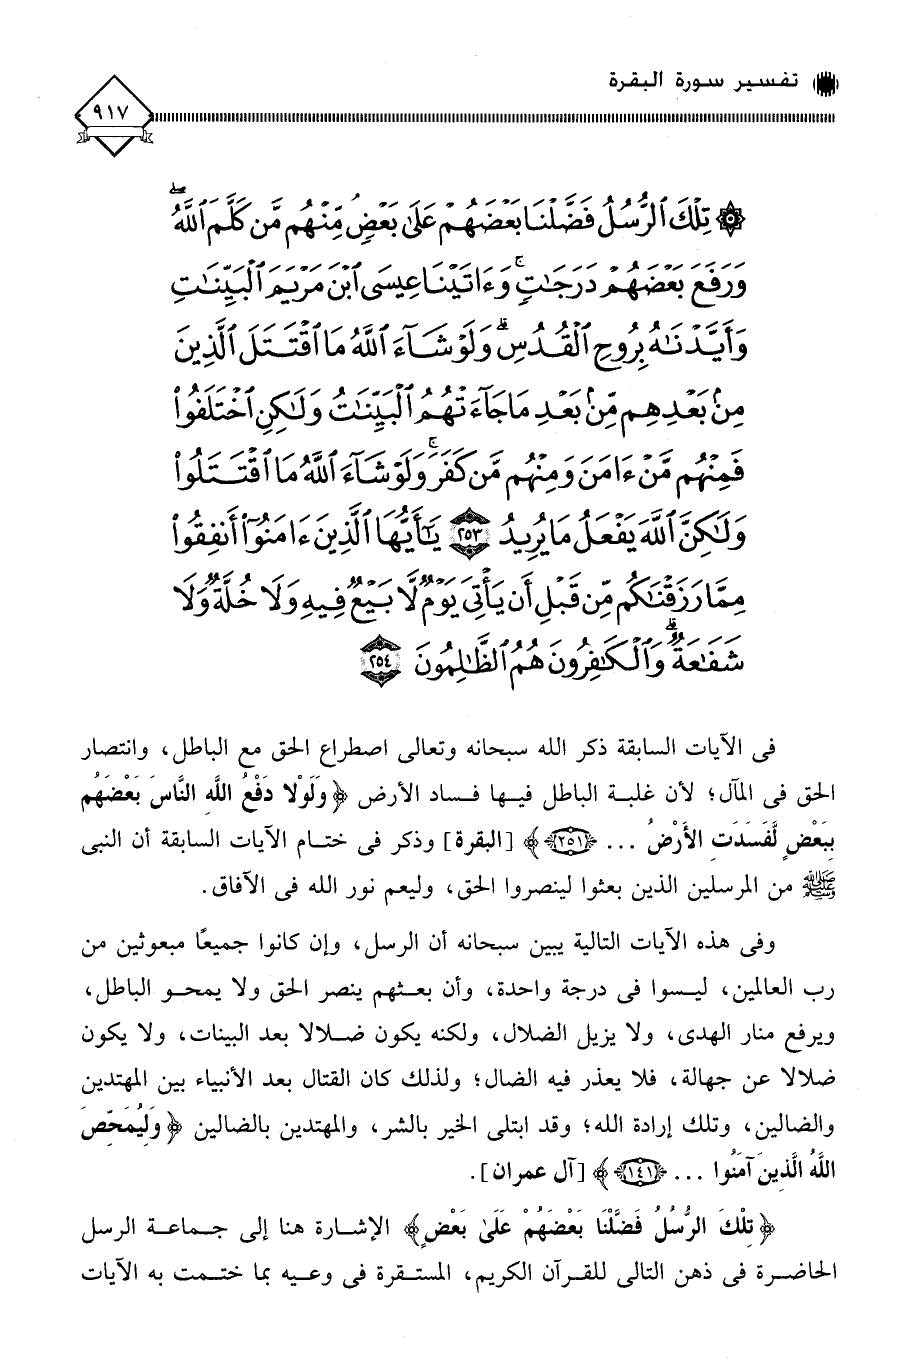 تفسير سورة البقرة
٩١٧
۞ تِلْكَ ٱلرُّسُلُ فَضَّلْنَا بَعْضَهُمْ عَلَىٰ بَعْضٍ مِّنْهُم مَّن كَلَّمَ ٱللَّهُ ۖ
وَرَفَعَ بَعْضَهُمْ دَرَجَـٰتٍ ۚ وَءَاتَيْنَا عِيسَى ٱبْنَ مَرْيَمَ ٱلْبَيِّنَـٰتِ
وَأَيَّدْنَـٰهُ بِرُوحِ ٱلْقُدُسِ ۗ وَلَوْ شَآءَ ٱللَّهُ مَا ٱقْتَتَلَ ٱلَّذِينَ
مِنۢ بَعْدِهِم مِّنۢ بَعْدِ مَا جَآءَتْهُمُ ٱلْبَيِّنَـٰتُ وَلَـٰكِنِ ٱخْتَلَفُوا۟
فَمِنْهُم مَّنْ ءَامَنَ وَمِنْهُم مَّن كَفَرَ ۚ وَلَوْ شَآءَ ٱللَّهُ مَا ٱقْتَتَلُوا۟
وَلَـٰكِنَّ ٱللَّهَ يَفْعَلُ مَا يُرِيدُ ٢٥٣ يَـٰٓأَيُّهَا ٱلَّذِينَ ءَامَنُوٓا۟ أَنفِقُوا۟
مِمَّا رَزَقْنَـٰكُم مِّن قَبْلِ أَن يَأْتِىَ يَوْمٌ لَّا بَيْعٌ فِيهِ وَلَا خُلَّةٌ وَلَا
شَفَـٰعَةٌ ۗ وَٱلْكَـٰفِرُونَ هُمُ ٱلظَّـٰلِمُونَ ٢٥٤
فى الآيات السابقة ذكر الله سبحانه وتعالى اصطراع الحق مع الباطل، وانتصار
الحق فى المآل؛ لأن غلبة الباطل فيها فساد الأرض ﴿وَلَوْلا دَفْعُ اللَّهِ النَّاسَ بَعْضَهُم
بِبَعْضٍ لَّفَسَدَتِ الأَرْضُ ... (٢٥١)﴾ [البقرة] وذكر فى ختام الآيات السابقة أن النبى
ﷺ من المرسلين الذين بعثوا لينصروا الحق، وليعم نور الله فى الآفاق.
وفى هذه الآيات التالية يبين سبحانه أن الرسل، وإن كانوا جميعًا مبعوثين من
رب العالمين، ليسوا فى درجة واحدة، وأن بعثهم ينصر الحق ولا يمحو الباطل،
ويرفع منار الهدى، ولا يزيل الضلال، ولكنه يكون ضلالا بعد البينات، ولا يكون
ضلالا عن جهالة، فلا يعذر فيه الضال؛ ولذلك كان القتال بعد الأنبياء بين المهتدين
والضالين، وتلك إرادة الله؛ وقد ابتلى الخير بالشر، والمهتدين بالضالين ﴿وَلِيُمَحِّصَ
اللَّهُ الَّذِينَ آمَنُوا ... (١٤١)﴾ [آل عمران].
﴿تِلْكَ الرُّسُلُ فَضَّلْنَا بَعْضَهُمْ عَلَىٰ بَعْضٍ﴾ الإشارة هنا إلى جماعة الرسل
الحاضرة فى ذهن التالى للقرآن الكريم، المستقرة فى وعيه بما ختمت به الآيات